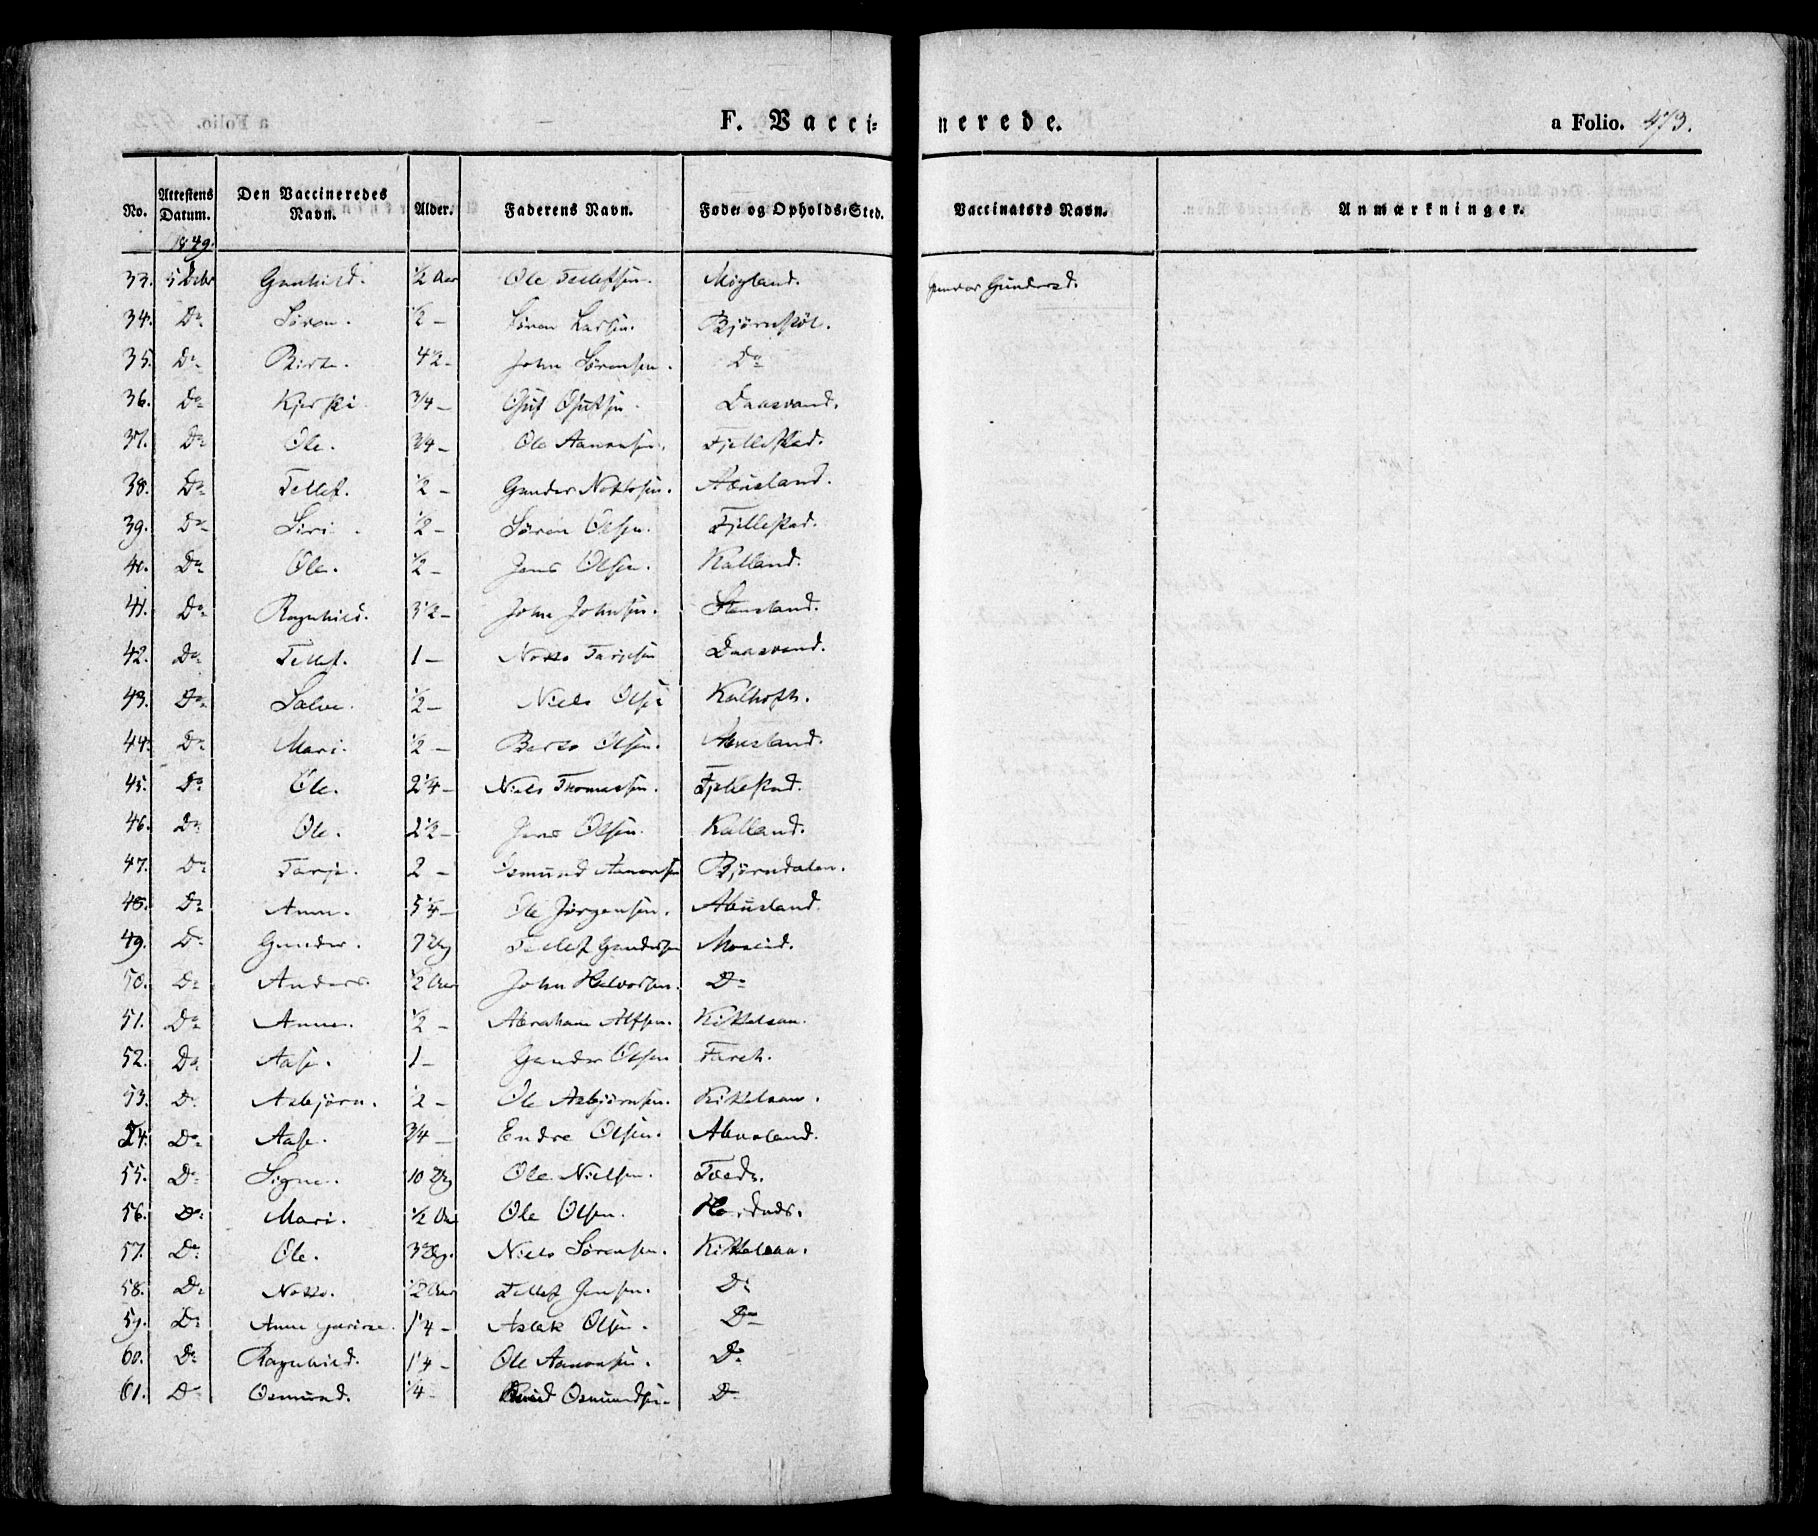 F. Vaccinerede. a Folio. 473.
No. Attestens Datum. Den Vaccineredes Navn. Alder. Faderens Navn. Føde- og Opholds-Sted. Vaccinators Navn. Anmærkninger.
1849.
33. 5 Debr Gunhild. 1/2 Aar Ole Tellefsen. Møgland. Gunder Gunders.
34. Do Søren. 1/2 — Søren Larsen. Bjørnskøl.
35. Do Birte. 4 1/2 — John Sørensen. Do
36. Do Kjersti 3/4 — Daasvand.
37. Do Ole. 3/4 — Ole Aanonsen. Fjellestad.
38. Do Tellef. 1/2 — Gunder Nottosen. Abusland.
39. Do Siri. 1/2 — Søren Olsen. Fjellestad.
40. Do Ole. 1/2 — Jens Olsen. Kalland.
41. Do Ragnhild. 3 1/2 — John Johnsen. Stausland.
42. Do Tellef. 1 — Notto Tarjesen Daasvand.
43. Do Salve. 1/2 — Niels Olse Kalhoft.
44. Do Mari. 1/2 — Berto Olsen. Abusland.
45. Do Ole. 2 1/4 — Niels Thomassen. Fjellestad.
46. Do Ole. 2 1/2 — Jens Olsen. Kalland.
47. Do Tarje. 2 — Osmund Aanonsen Bjørndalen.
48. Do Anne. 5 1/4 — Ole Jørgensen. Abusland.
49. Do Gunder. 7 Tellef Gundersen Moseid.
50. Do Anders. 1/2 Aar John Halvorsen. Do
51. Do Anne. 1/2 — Abraham Alfsen. Kittelsaa.
52. Do Aase. 1 — Gunder Olsen
53. Do Asbjørn. 1/2 — Ole Asbjørnsen. Kittelsaa.
54. Do Aase. 3/4 — Endre Olsen. Abusland.
55. Do Signe. 10 Ole Nielsen.
56. Do Mari. 1/2 Aar Ole Olsen.
57. Do Ole. 3 Niels Sørensen. Kittelsaa.
58. Do Notto. 1/2 Aar Tellef Jensen. Do
59. Do Anne 1 1/4 — Aslak Olsen. Do
60. Do Ragnhild. 1 1/4 — Ole Aanonsen. Do
61. Do Osmund. 1/4 — Osmundsen. Do